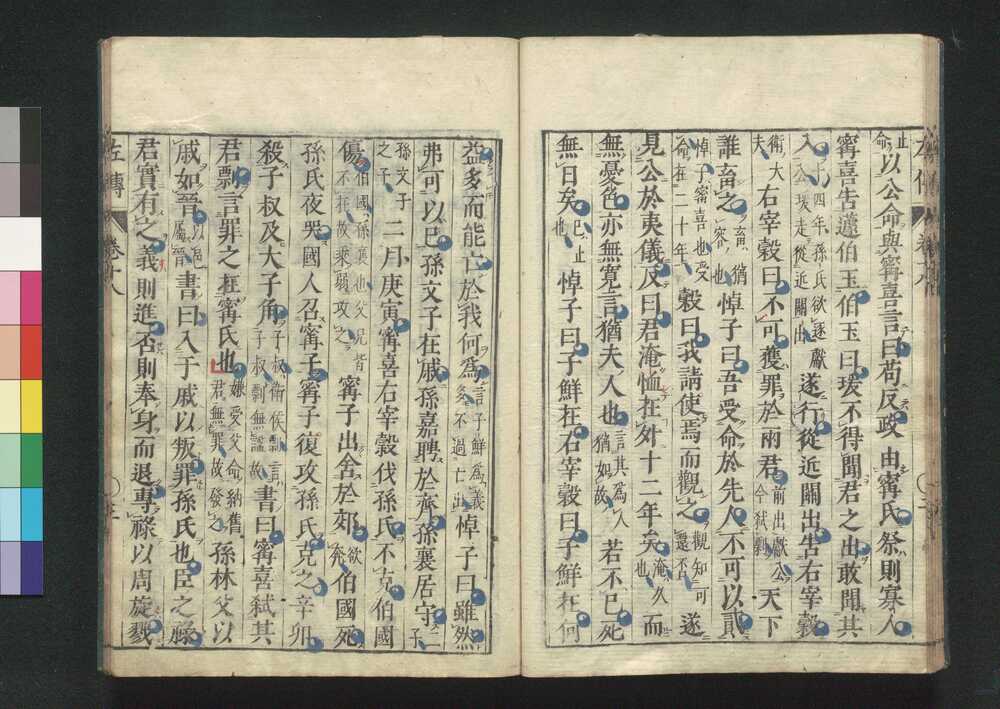 左傳 卷十八
止命以公命與甯喜言曰苟反政由甯氏祭則寡人
甯喜告蘧伯玉伯玉曰瑗不得聞君之出敢聞其
入十四年孫氏欲逐獻公瑗走從近關出遂行從近關出告右宰穀
衛大夫右宰穀曰不可獲罪於兩君前出獻公今弒剽天下
誰畜之畜猶容也悼子曰吾受命於先人不可以貳
悼子甯喜也受命在二十年穀曰我請使焉而觀之觀知可還否遂
見公於夷儀反曰君淹恤在外十二年矣淹久也而
無憂色亦無寬言猶夫人也言其為人猶如故若不已死
無日矣已止也悼子曰子鮮在右宰穀曰子鮮在何
益多而能亡於我何為言子鮮為義多不過亡出悼子曰雖然
弗可以已孫文子在戚孫嘉聘於齊孫襄居守二子
孫文子之子二月庚寅甯喜右宰穀伐孫氏不克伯國
傷伯國孫襄也父兄皆不在故乘弱攻之甯子出舍於郊欲奔伯國死
孫氏夜哭國人召甯子甯子復攻孫氏克之辛卯
殺子叔及大子角子叔衛侯剽言子叔剽無謚故書曰甯喜弒其
君剽言罪之在甯氏也嫌受父命納舊君無罪故發之孫林父以
戚如晉以邑屬晉書曰入于戚以叛罪孫氏也臣之祿
君實有之義則進否則奉身而退專祿以周旋戮
左傳 卷十八